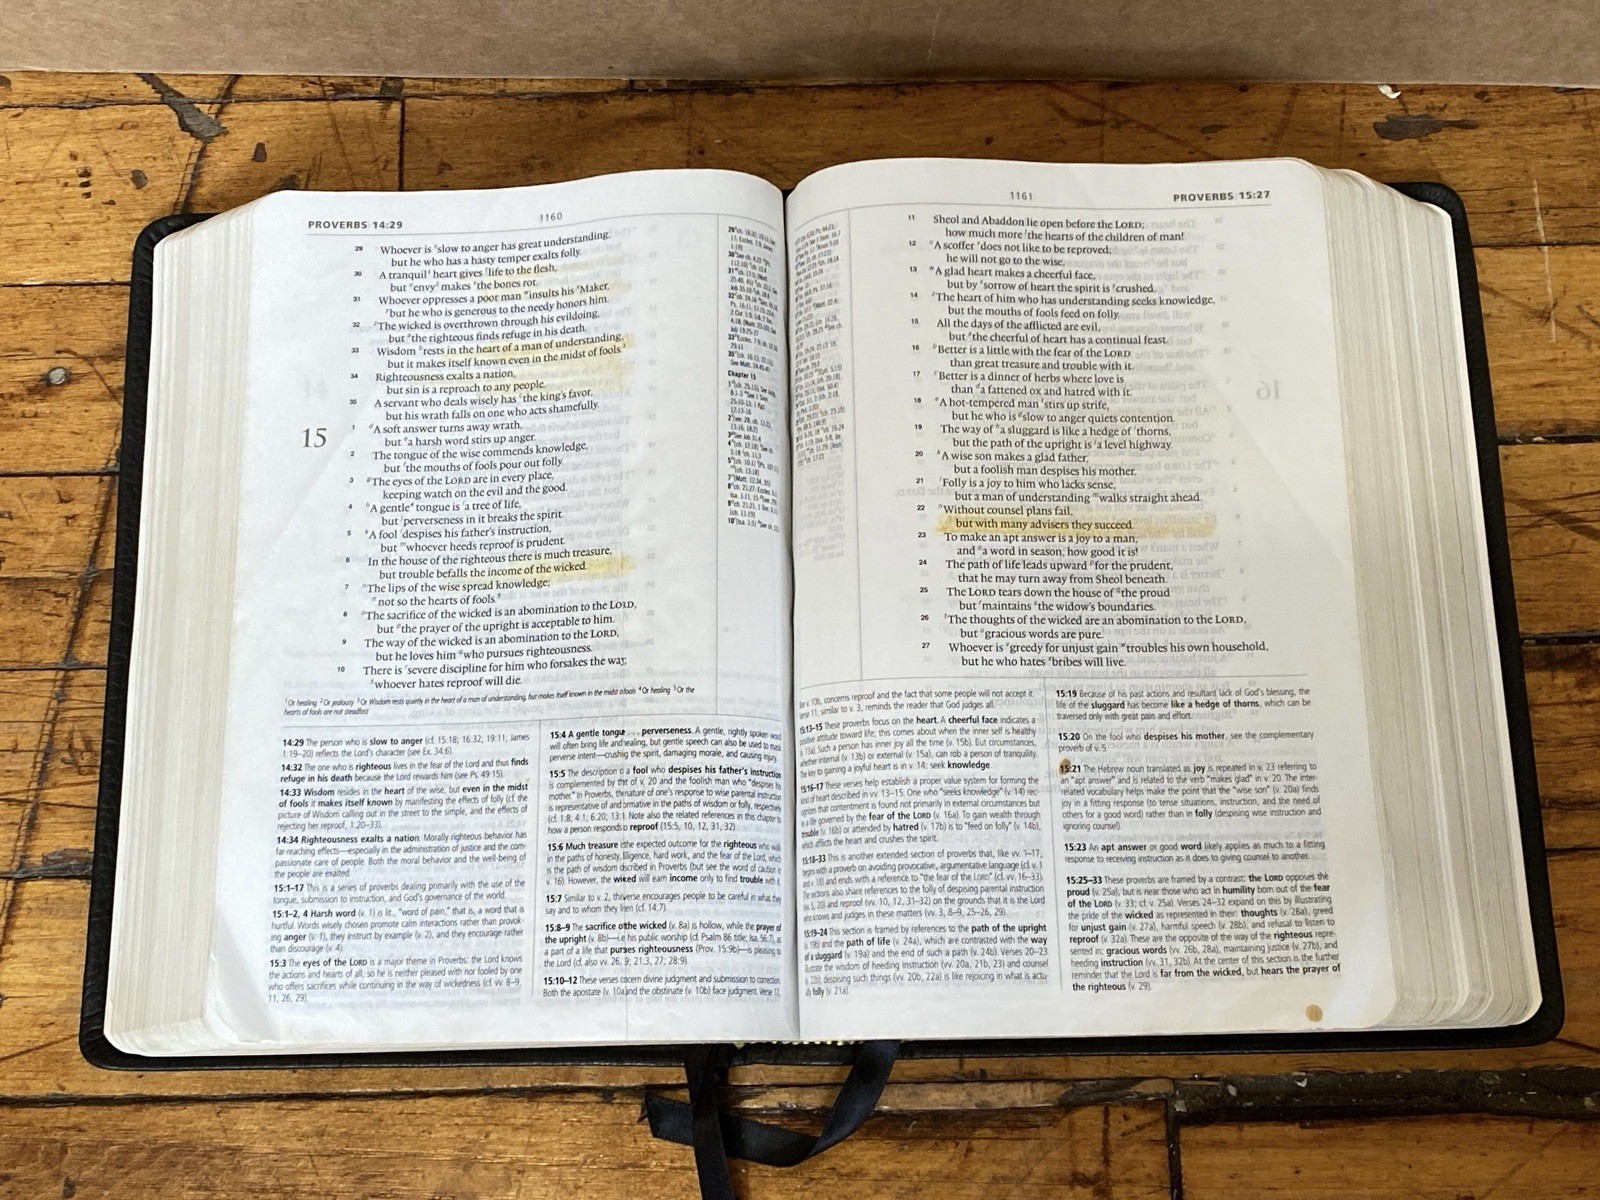 PROVERBS 14:29
1160
29 Whoever is slow to anger has great understanding,
but he who has a hasty temper exalts folly.
30 A tranquil heart gives life to the flesh,
but envy makes the bones rot.
31 Whoever oppresses a poor man insults his Maker,
but he who is generous to the needy honors him.
32 The wicked is overthrown through his evildoing,
but the righteous finds refuge in his death.
33 Wisdom rests in the heart of a man of understanding,
but it makes itself known even in the midst of fools.
34 Righteousness exalts a nation,
but sin is a reproach to any people.
35 A servant who deals wisely has the king's favor,
but his wrath falls on one who acts shamefully.
15
1 A soft answer turns away wrath,
but a harsh word stirs up anger.
2 The tongue of the wise commends knowledge,
but the mouths of fools pour out folly.
3 The eyes of the LORD are in every place,
keeping watch on the evil and the good.
4 A gentle tongue is a tree of life,
but perverseness in it breaks the spirit.
5 A fool despises his father's instruction,
but whoever heeds reproof is prudent.
6 In the house of the righteous there is much treasure,
but trouble befalls the income of the wicked.
7 The lips of the wise spread knowledge;
not so the hearts of fools.
8 The sacrifice of the wicked is an abomination to the LORD,
but the prayer of the upright is acceptable to him.
9 The way of the wicked is an abomination to the LORD,
but he loves him who pursues righteousness.
10 There is severe discipline for him who forsakes the way;
whoever hates reproof will die.
1 Or healing 2 Or jealousy 3 Or Wisdom rests quietly in the heart of a man of understanding, but makes itself known in the midst of fools 4 Or healing 5 Or the
hearts of fools are not steadfast
14:29 The person who is slow to anger (cf. 15:18; 16:32; 19:11; James
1:19–20) reflects the Lord's character (see Ex. 34:6).
14:32 The one who is righteous lives in the fear of the Lord and thus finds
refuge in his death because the Lord rewards him (see Ps. 49:15).
14:33 Wisdom resides in the heart of the wise, but even in the midst
of fools it makes itself known by manifesting the effects of folly (cf. the
picture of Wisdom calling out in the street to the simple, and the effects of
rejecting her reproof, 1:20–33).
14:34 Righteousness exalts a nation. Morally righteous behavior has
far-reaching effects—especially in the administration of justice and the com-
passionate care of people. Both the moral behavior and the well-being of
the people are exalted.
15:1–17 This is a series of proverbs dealing primarily with the use of the
tongue, submission to instruction, and God's governance of the world.
15:1–2, 4 Harsh word (v. 1) is lit., "word of pain," that is, a word that is
hurtful. Words wisely chosen promote calm interactions rather than provok-
ing anger (v. 1), they instruct by example (v. 2), and they encourage rather
than discourage (v. 4).
15:3 The eyes of the LORD is a major theme in Proverbs: the Lord knows
the actions and hearts of all, so he is neither pleased with nor fooled by one
who offers sacrifices while continuing in the way of wickedness (cf. vv. 8–9,
11, 26, 29).
15:4 A gentle tongue perverseness. A gentle, rightly spoken word
will often bring life and healing, but gentle speech can also be used to mask
perverse intent—crushing the spirit, damaging morale, and causing injury.
15:5 The description a fool who despises his father's instruction
is complemented by that of v. 20 and the foolish man who "despises his
mother." In Proverbs, the nature of one's response to wise parental instruction
is representative of and formative in the paths of wisdom or folly, respectively
(cf. 1:8; 4:1; 6:20; 13:1. Note also the related references in this chapter to
how a person responds to reproof (15:5, 10, 12, 31, 32).
15:6 Much treasure is the expected outcome for the righteous who walk
in the paths of honesty, diligence, hard work, and the fear of the Lord, which
is the path of wisdom described in Proverbs (but see the word of caution in
v. 16). However, the wicked will earn income only to find trouble with it.
15:7 Similar to v. 2, this verse encourages people to be careful in what they
say and to whom they listen (cf. 14:7).
15:8–9 The sacrifice of the wicked (v. 8a) is hollow, while the prayer of
the upright (v. 8b)—i.e., his public worship (cf. Psalm 86 title; Isa. 56:7), as
a part of a life that pursues righteousness (Prov. 15:9b)—is pleasing to
the Lord (cf. also vv. 26, 9; 21:3, 27; 28:9).
15:10–12 These verses concern divine judgment and submission to correction.
Both the apostate (v. 10a) and the obstinate (v. 10b) face judgment. Verse 12,
1161
PROVERBS 15:27
11 Sheol and Abaddon lie open before the LORD;
how much more the hearts of the children of man!
12 A scoffer does not like to be reproved;
he will not go to the wise.
13 A glad heart makes a cheerful face,
but by sorrow of heart the spirit is crushed.
14 The heart of him who has understanding seeks knowledge,
but the mouths of fools feed on folly.
15 All the days of the afflicted are evil,
but the cheerful of heart has a continual feast.
16 Better is a little with the fear of the LORD
than great treasure and trouble with it.
17 Better is a dinner of herbs where love is
than a fattened ox and hatred with it.
18 A hot-tempered man stirs up strife,
but he who is slow to anger quiets contention.
19 The way of a sluggard is like a hedge of thorns,
but the path of the upright is a level highway.
20 A wise son makes a glad father,
but a foolish man despises his mother.
21 Folly is a joy to him who lacks sense,
but a man of understanding walks straight ahead.
22 Without counsel plans fail,
but with many advisers they succeed.
23 To make an apt answer is a joy to a man,
and a word in season, how good it is!
24 The path of life leads upward for the prudent,
that he may turn away from Sheol beneath.
25 The LORD tears down the house of the proud
but maintains the widow's boundaries.
26 The thoughts of the wicked are an abomination to the LORD,
but gracious words are pure.
27 Whoever is greedy for unjust gain troubles his own household,
but he who hates bribes will live.
v. 10b, concerns reproof and the fact that some people will not accept it.
verse 11, similar to v. 3, reminds the reader that God judges all.
15:13–15 These proverbs focus on the heart. A cheerful face indicates a
positive attitude toward life; this comes about when the inner self is healthy
(v. 13a). Such a person has inner joy all the time (v. 15b). But circumstances,
whether internal (v. 13b) or external (v. 15a), can rob a person of tranquility.
The key to gaining a joyful heart is in v. 14: seek knowledge.
15:16–17 These verses help establish a proper value system for forming the
kind of heart described in vv. 13–15. One who "seeks knowledge" (v. 14) rec-
ognizes that contentment is found not primarily in external circumstances but
in a life governed by the fear of the LORD (v. 16a). To gain wealth through
trouble (v. 16b) or attended by hatred (v. 17b) is to "feed on folly" (v. 14b),
which afflicts the heart and crushes the spirit.
15:18–33 This is another extended section of proverbs that, like vv. 1–17,
begins with a proverb on avoiding provocative, argumentative language (cf. v. 1
and v. 18) and ends with a reference to "the fear of the LORD" (cf. vv. 16–33).
The sections also share references to the folly of despising parental instruction
(vv. 5, 20) and reproof (vv. 10, 12, 31–32) on the grounds that it is the Lord
who knows and judges in these matters (vv. 3, 8–9, 25–26, 29).
15:19–24 This section is framed by references to the path of the upright
(v. 19b) and the path of life (v. 24a), which are contrasted with the way
of a sluggard (v. 19a) and the end of such a path (v. 24b). Verses 20–23
illustrate the wisdom of heeding instruction (vv. 20a, 21b, 23) and counsel
(v. 22b); despising such things (vv. 20b, 22a) is like rejoicing in what is actu-
ally folly (v. 21a).
15:19 Because of his past actions and resultant lack of God's blessing, the
life of the sluggard has become like a hedge of thorns, which can be
traversed only with great pain and effort.
15:20 On the fool who despises his mother, see the complementary
proverb of v. 5.
15:21 The Hebrew noun translated as joy is repeated in v. 23 referring to
an "apt answer" and is related to the verb "makes glad" in v. 20. The inter-
related vocabulary helps make the point that the "wise son" (v. 20a) finds
joy in a fitting response (to tense situations, instruction, and the need of
others for a good word) rather than in folly (despising wise instruction and
ignoring counsel).
15:23 An apt answer or good word likely applies as much to a fitting
response to receiving instruction as it does to giving counsel to another.
15:25–33 These proverbs are framed by a contrast: the LORD opposes the
proud (v. 25a), but is near those who act in humility born out of the fear
of the LORD (v. 33; cf. v. 25a). Verses 24–32 expand on this by illustrating
the pride of the wicked as represented in their: thoughts (v. 26a), greed
for unjust gain (v. 27a), harmful speech (v. 28b), and refusal to listen to
reproof (v. 32a). These are the opposite of the way of the righteous repre-
sented in: gracious words (vv. 26b, 28a), maintaining justice (v. 27b), and
heeding instruction (vv. 31, 32b). At the center of this section is the further
reminder that the Lord is far from the wicked, but hears the prayer of
the righteous (v. 29).